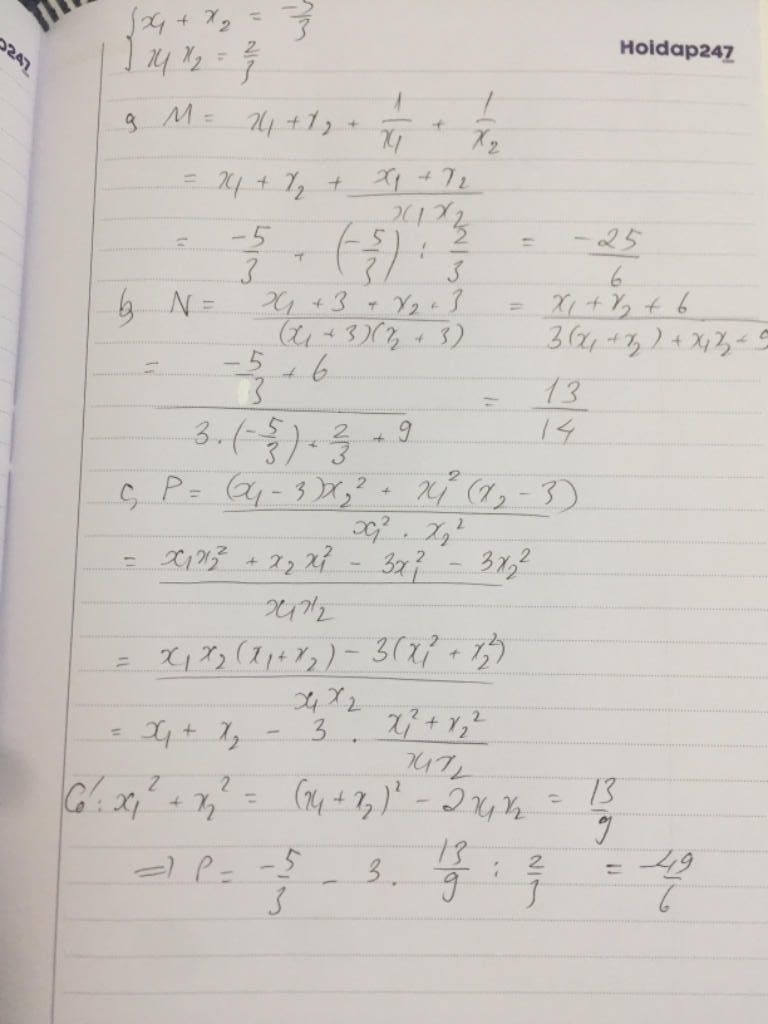 {x₁ + x₂ = -5/3
{x₁ x₂ = 2/3
Hoidap247
247
a, M = x₁ + x₂ + 1/x₁ + 1/x₂
= x₁ + x₂ + (x₁ + x₂)/(x₁ x₂)
= -5/3 + (-5/3) : 2/3 = -25/6
b, N = (x₁ + 3 + x₂ + 3)/((x₁ + 3)(x₂ + 3)) = (x₁ + x₂ + 6)/(3(x₁ + x₂) + x₁x₂ + 9
= (-5/3 + 6)/(3.(-5/3) + 2/3 + 9) = 13/14
c, P = ((x₁ - 3)x₂² + x₁²(x₂ - 3))/(x₁² . x₂²)
= (x₁x₂² + x₂x₁² - 3x₁² - 3x₂²)/(x₁x₂)
= (x₁x₂(x₁+x₂) - 3(x₁² + x₂²))/(x₁x₂)
= x₁ + x₂ - 3 . (x₁² + x₂²)/(x₁x₂)
Có: x₁² + x₂² = (x₁ + x₂)² - 2x₁x₂ = 13/9
=> P = -5/3 - 3. 13/9 : 2/3 = -49/6